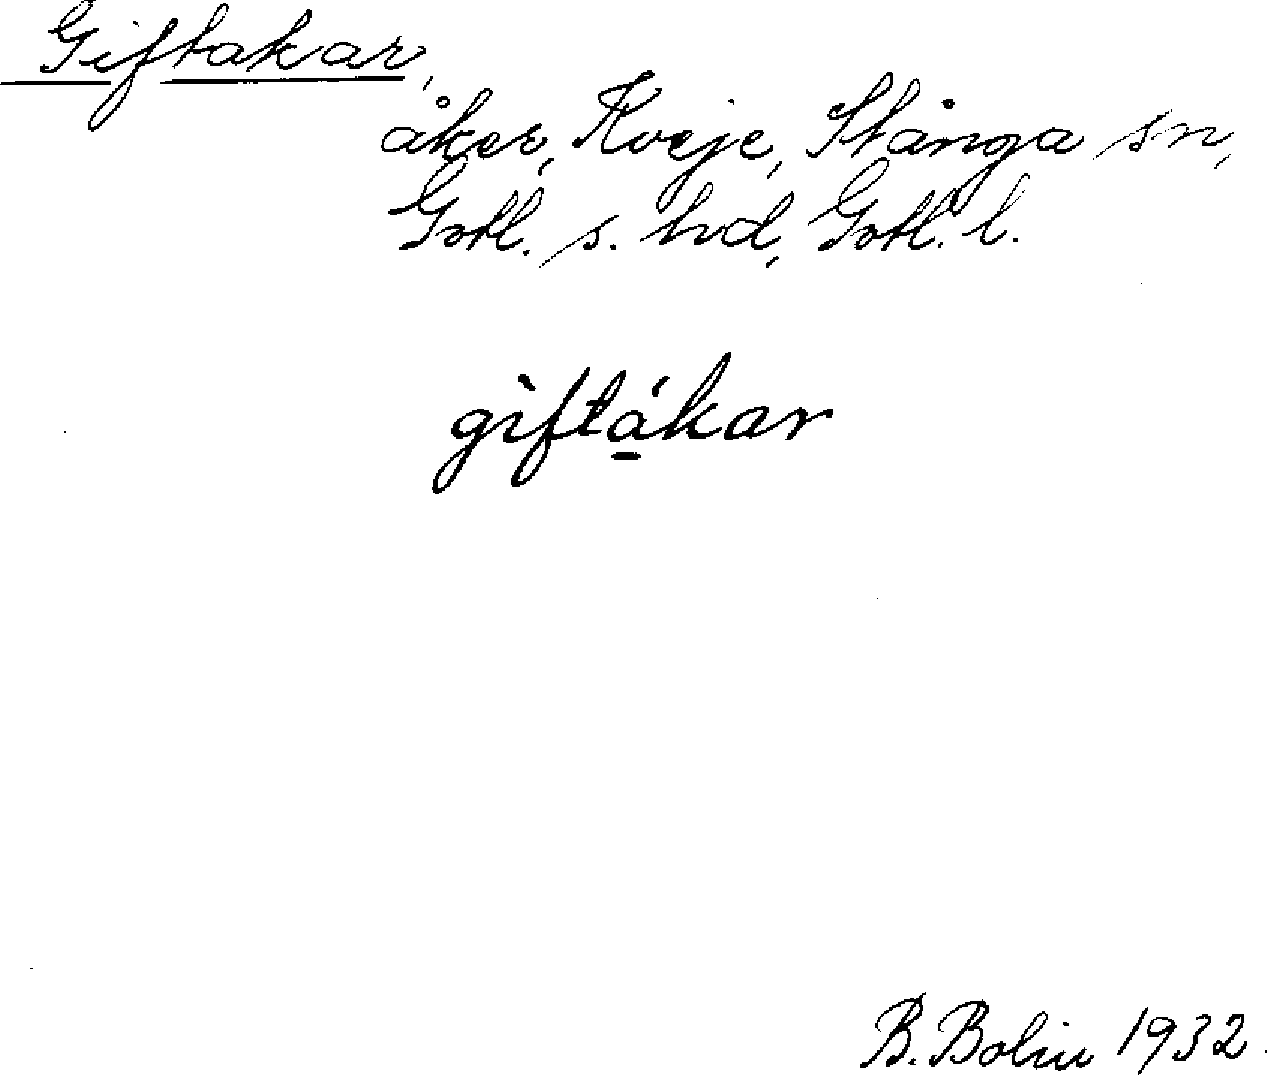 Giftakar,
åker, Kveje, Stånga sn,
Gotl. s. hd, Gotl. l.
gìftá̱kar
B. Bolin 1932.